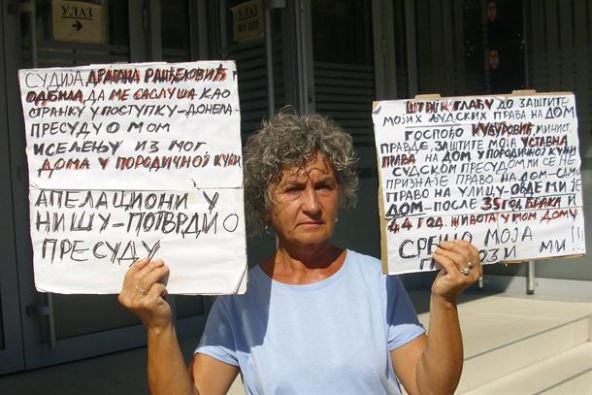 УЛАЗ
УЛАЗ
СУДИЈА ДРАГАНА РАНЂЕЛОВИЋ
ОДБИЛА ДА МЕ САСЛУША КАО
СТРАНКУ У ПОСТУПКУ-ДОНЕЛА-
ПРЕСУДУ О МОМ
ИСЕЉЕЊУ ИЗ МОГ
ДОМА У ПОРОДИЧНОЈ КУЋИ
АПЕЛАЦИОНИ У
НИШУ-ПОТВРДИО
ПРЕСУДУ
ШТРАЈК ГЛАЂУ ДО ЗАШТИТЕ
МОЈИХ ЉУДСКИХ ПРАВА НА ДОМ
ГОСПОЂО КУБУРОВИЋ, МИНИСТ.
ПРАВДЕ, ЗАШТИТЕ МОЈА УСТАВНА
ПРАВА НА ДОМ У ПОРОДИЧНОЈ КУЋИ
СУДСКОМ ПРЕСУДОМ МИ СЕ НЕ
ПРИЗНАЈЕ ПРАВО НА ДОМ-САМО
ПРАВО НА УЛИЦУ-ОВДЕ МИ ЈЕ
ДОМ-ПОСЛЕ 35 ГОД БРАКА И
44 ГОД. ЖИВОТА У МОМ ДОМУ
МОЈА
МИ!!!